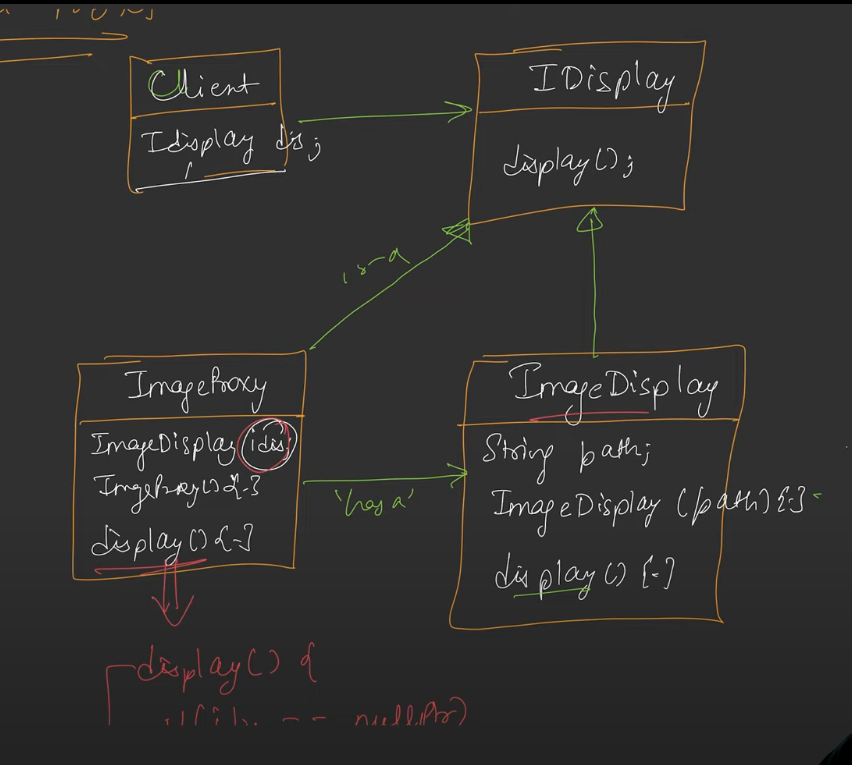 Client
Idisplay dis;
IDisplay
display();
is-a
ImageProxy
ImageDisplay idis;
ImageProxy() {-}
display() {-}
'has a'
ImageDisplay
String path;
ImageDisplay (path) {-}
display() {-}
display() {
== nullptr)